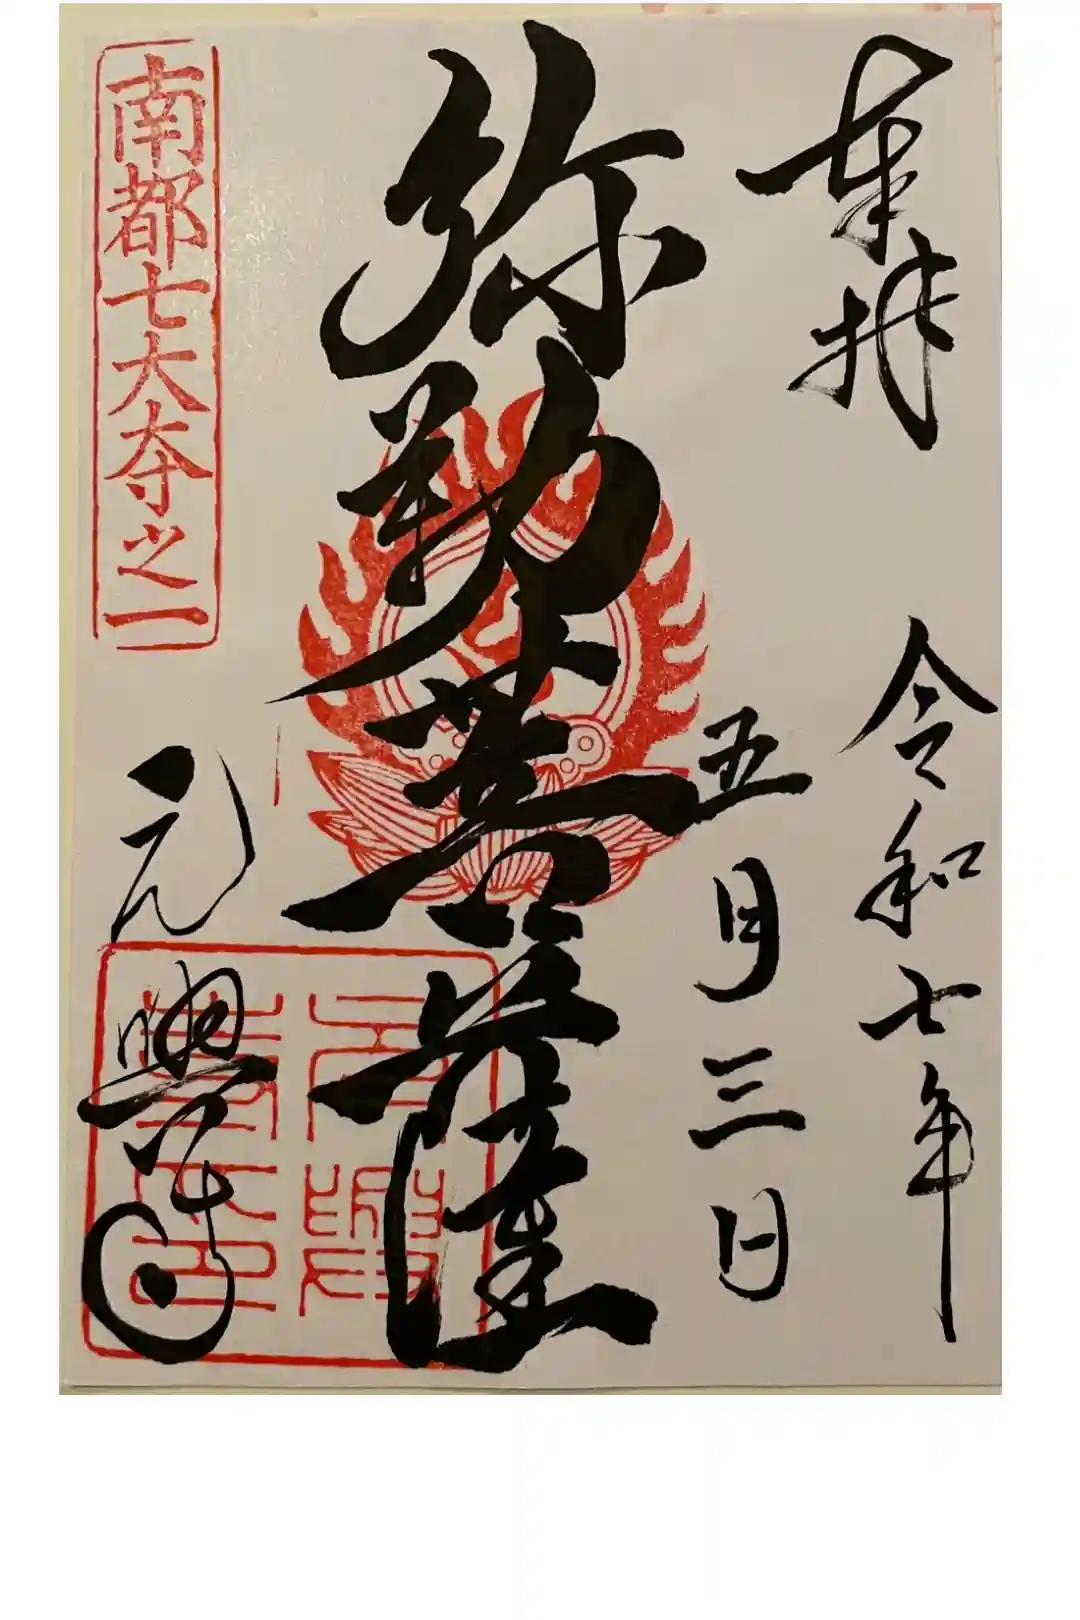 奉拝
令和七年
五月三日
弥勒菩薩
南都七大寺之一
元興寺
元興寺印